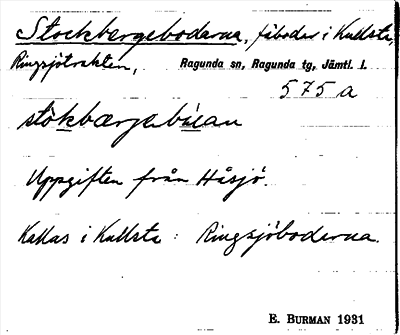 Stockbergsbodarna, fäbodar i Kullsta,
Ringsjötrakten, Ragunda sn, Ragunda tg, Jämtl. l.
575 a
stòkbærjsbùan
Uppgiften från Håsjö.
Kallas i Kullsta: Ringsjöbodarna.
E. BURMAN 1931